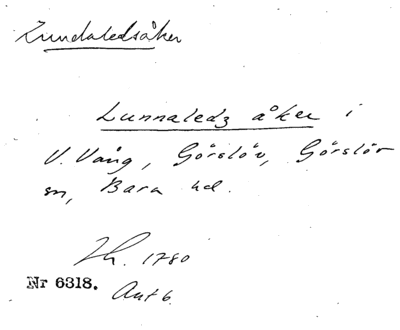 Lundaledsåker
Lunnaledz åker i
V. Vång, Görslöv, Görslöv
sn, Bara hd.
Jh. 1780
Nr 6318.
Ant 6.